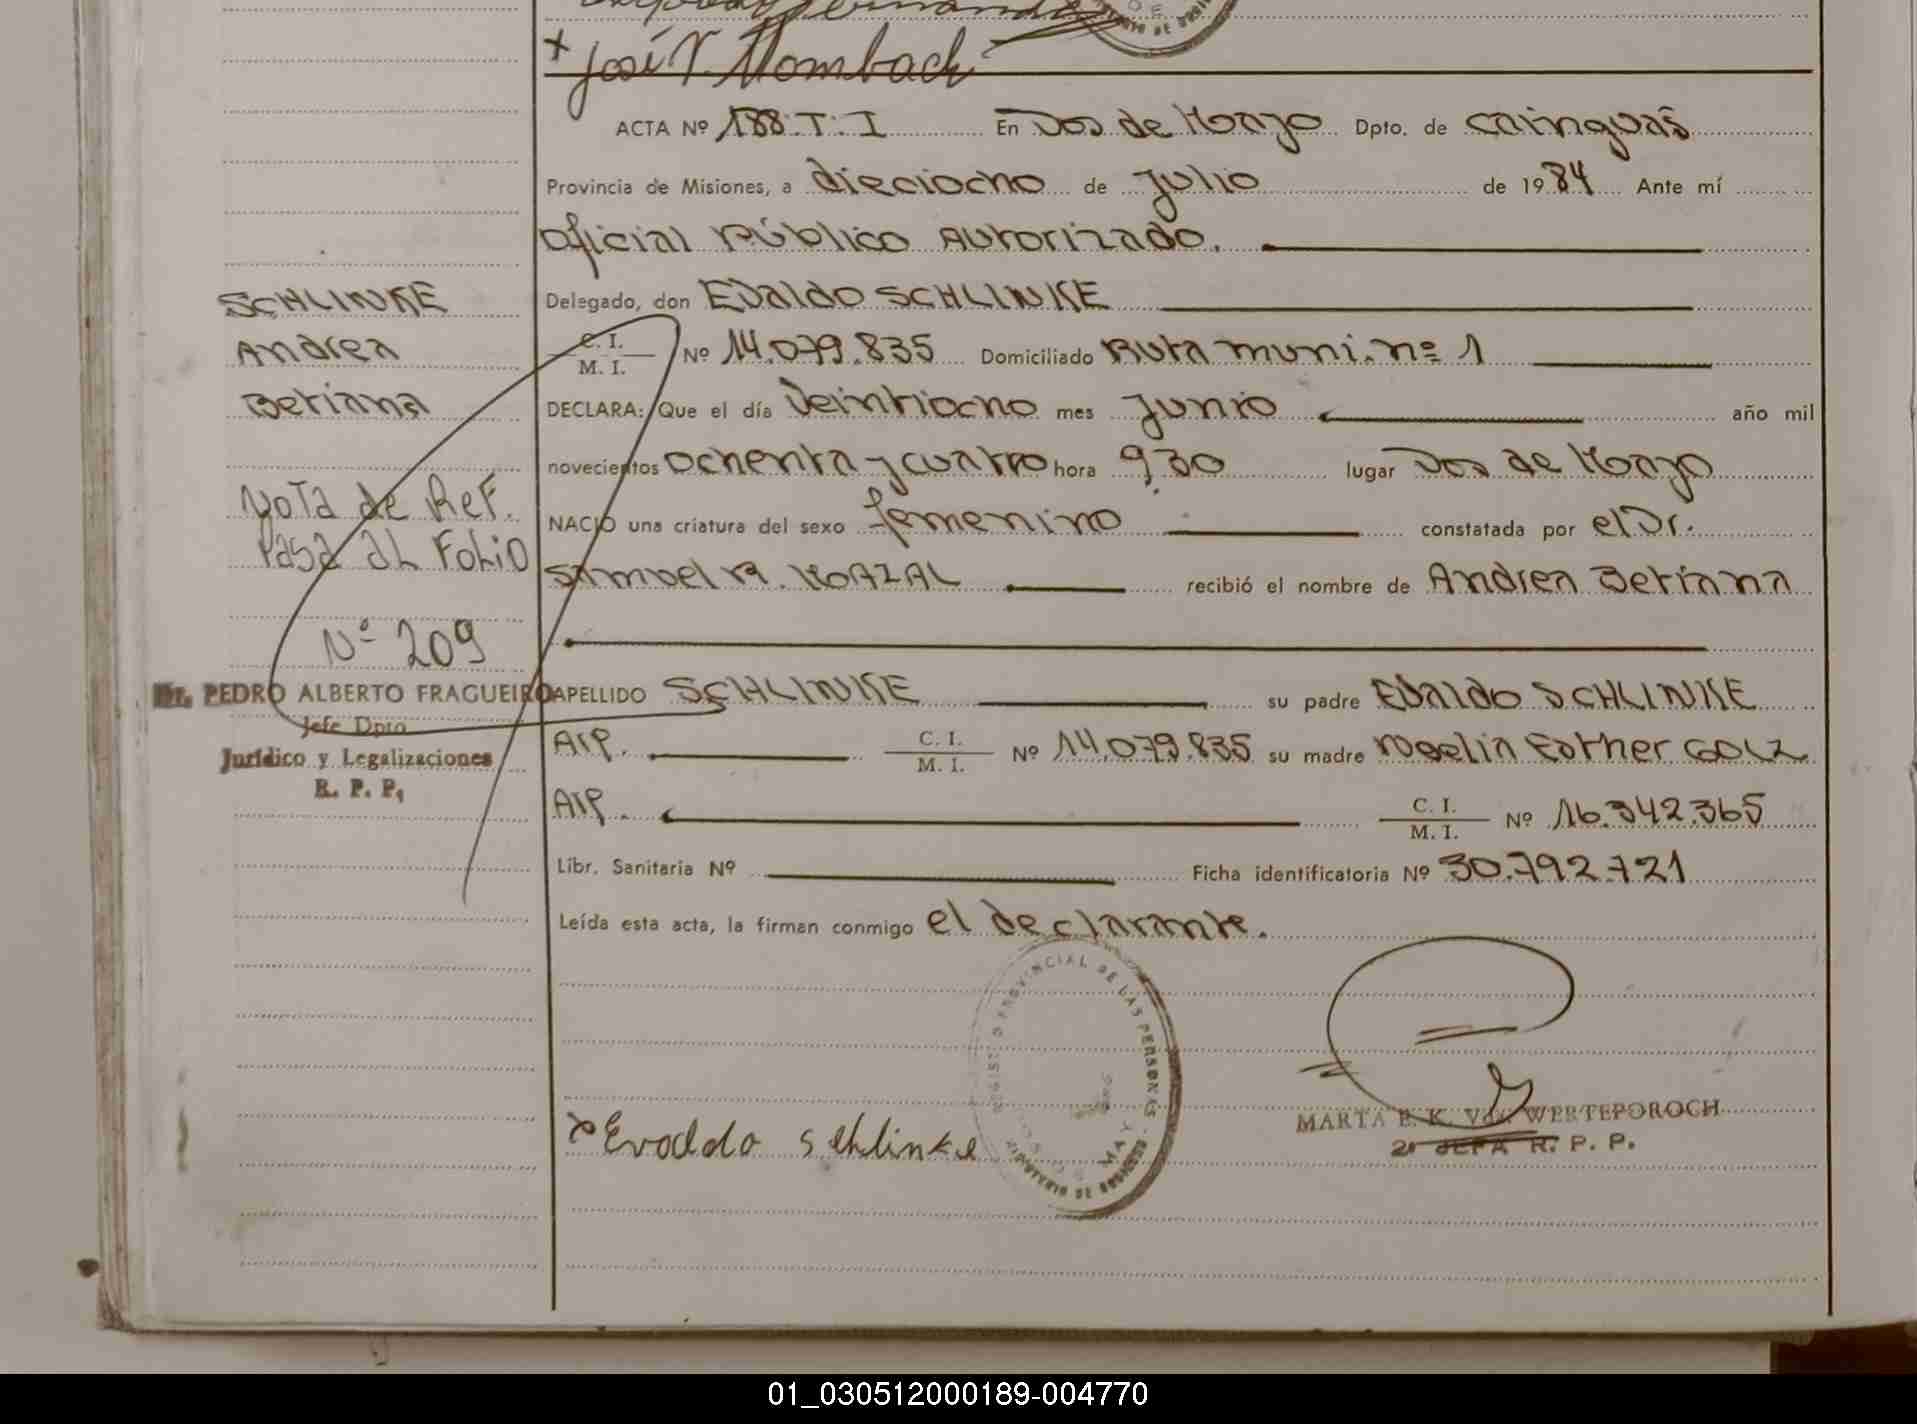 José V. Mombach
ACTA Nº 188. T. I En Dos de Mayo Dpto. de Cainguás
Provincia de Misiones, a dieciocho de Julio de 1984 Ante mí
Oficial Público Autorizado.
SCHLINKE
Delegado, don EDALDO SCHLINKE
Andrea
C. I.
M. I. Nº 14.079.835 Domiciliado Ruta muni. nº 1
Beriana
DECLARA: Que el día Veintiocho mes Junio año mil
novecientos Ochenta y cuatro hora 9,30 lugar Dos de Mayo
Nota de Ref.
NACIO una criatura del sexo femenino constatada por el Dr.
Pasa al Folio
Samuel R. recibió el nombre de Andrea Beriana
Nº 209
Dr. PEDRO ALBERTO FRAGUEIRO
APELLIDO SCHLINKE su padre EDALDO SCHLINKE
Jefe Dpto
Jurídico y Legalizaciones
R. P. P.
Arg. C. I.
M. I. Nº 14.079.835 su madre Rogelia Esther GOLZ
Arg. C. I.
M. I. Nº 16.342.365
Libr. Sanitaria Nº Ficha identificatoria Nº 30.792.721
Leída esta acta, la firman conmigo el declarante.
REGISTRO PROVINCIAL DE LAS PERSONAS
Evaldo schlinke
MARTA E. K. Vda. WERTEPOROCH
2º JEFA R. P. P.
01_030512000189-004770